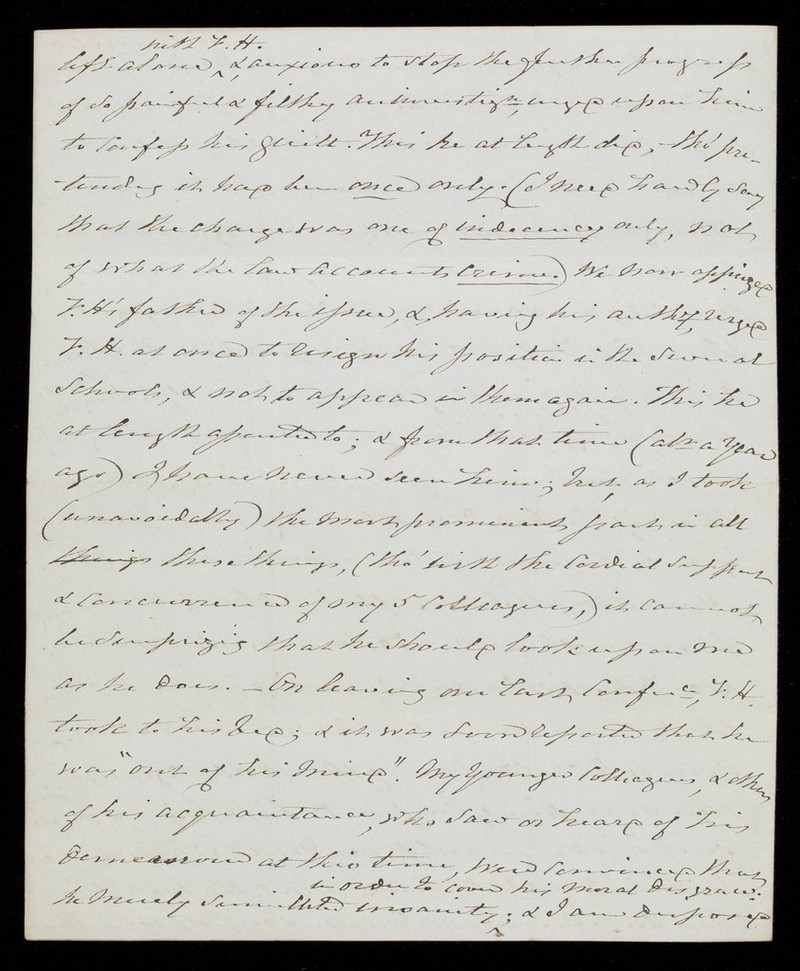 with F. H.
left alone, & anxious to stop the further progress
of so painful & filthy an investign, urged upon him
to confess his guilt. This he at length did, tho' pre-
tending it had been once only. (I need hardly say
that the charge was one of indecency only, not
of what the law accounts crime.) We now apprized
F. H's father of the issue, &, having his authy, urged
F. H. at once to resign his position in the several
Schools, & not to appear in them again. This he
at length assented to; & from that time (abt a Year
ago) I have never seen him; but, as I took
(unavoidably) the most prominent part in all
things these things, (tho' with the cordial support
& concurrence of my 5 Colleagues,) it cannot
be surprizing that he should look upon me
as he does. — On leaving our last Confce, F. H.
took to his bed; & it was soon reported that he
was "out of his mind". My Younger Colleagues, & others
of his acquaintance, who saw or heard of his
demeanour at this time, were convinced that
in order to cover his moral disgrace:
he merely simulated insanity; & I am disposed